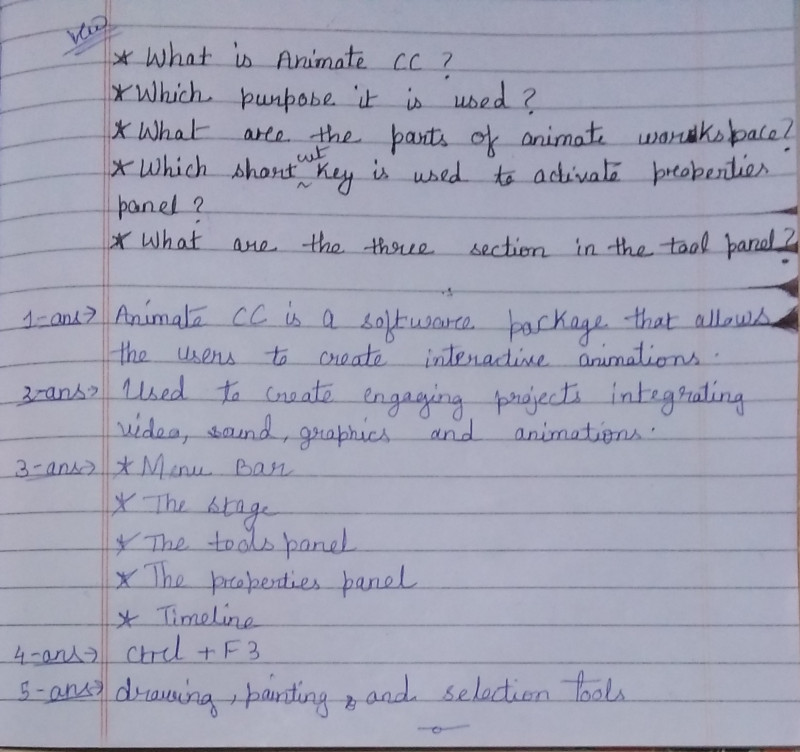 * What is Animate CC ?
* Which purpose it is used ?
* What are the parts of animate workspace?
* Which short cut key is used to activate properties
panel ?
* What are the three section in the tool panel?
1-ans→ Animate CC is a software package that allows
the users to create interactive animations.
2-ans→ Used to create engaging projects integrating
video, sound, graphics and animations.
3-ans→ * Menu Bar
* The stage
* The tools panel
* The properties panel
* Timeline
4-ans→ ctrl + F3
5-ans→ drawing, painting, and selection tools